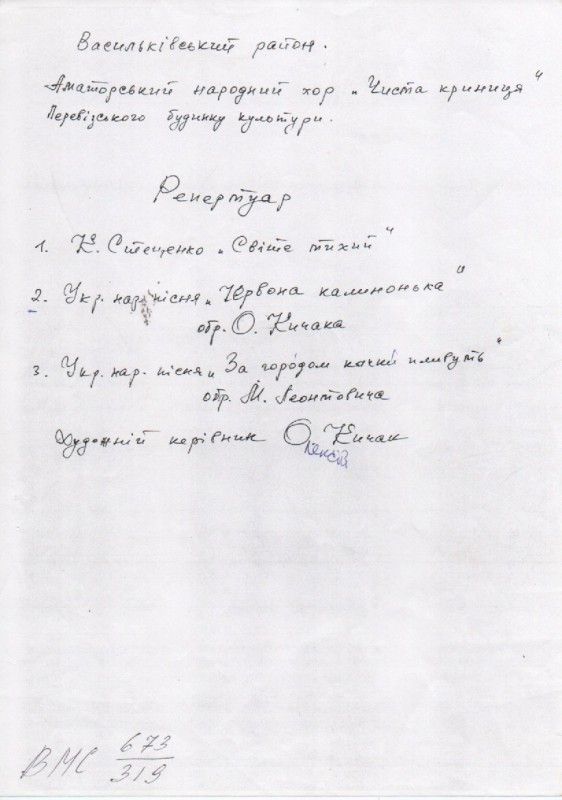 Васильківський район.
Аматорський народний хор „Чиста криниця"
Перевізського будинку культури.
Репертуар
1. К. Стеценко „Світе тихий"
2. Укр. нар. пісня „Червона калинонька"
обр. О. Кичака
3. Укр. нар. пісня „За горо́дом качки́ пливуть"
обр. М. Леонтовича
Художній керівник О. Кичак
лексій
ВМС 673/319